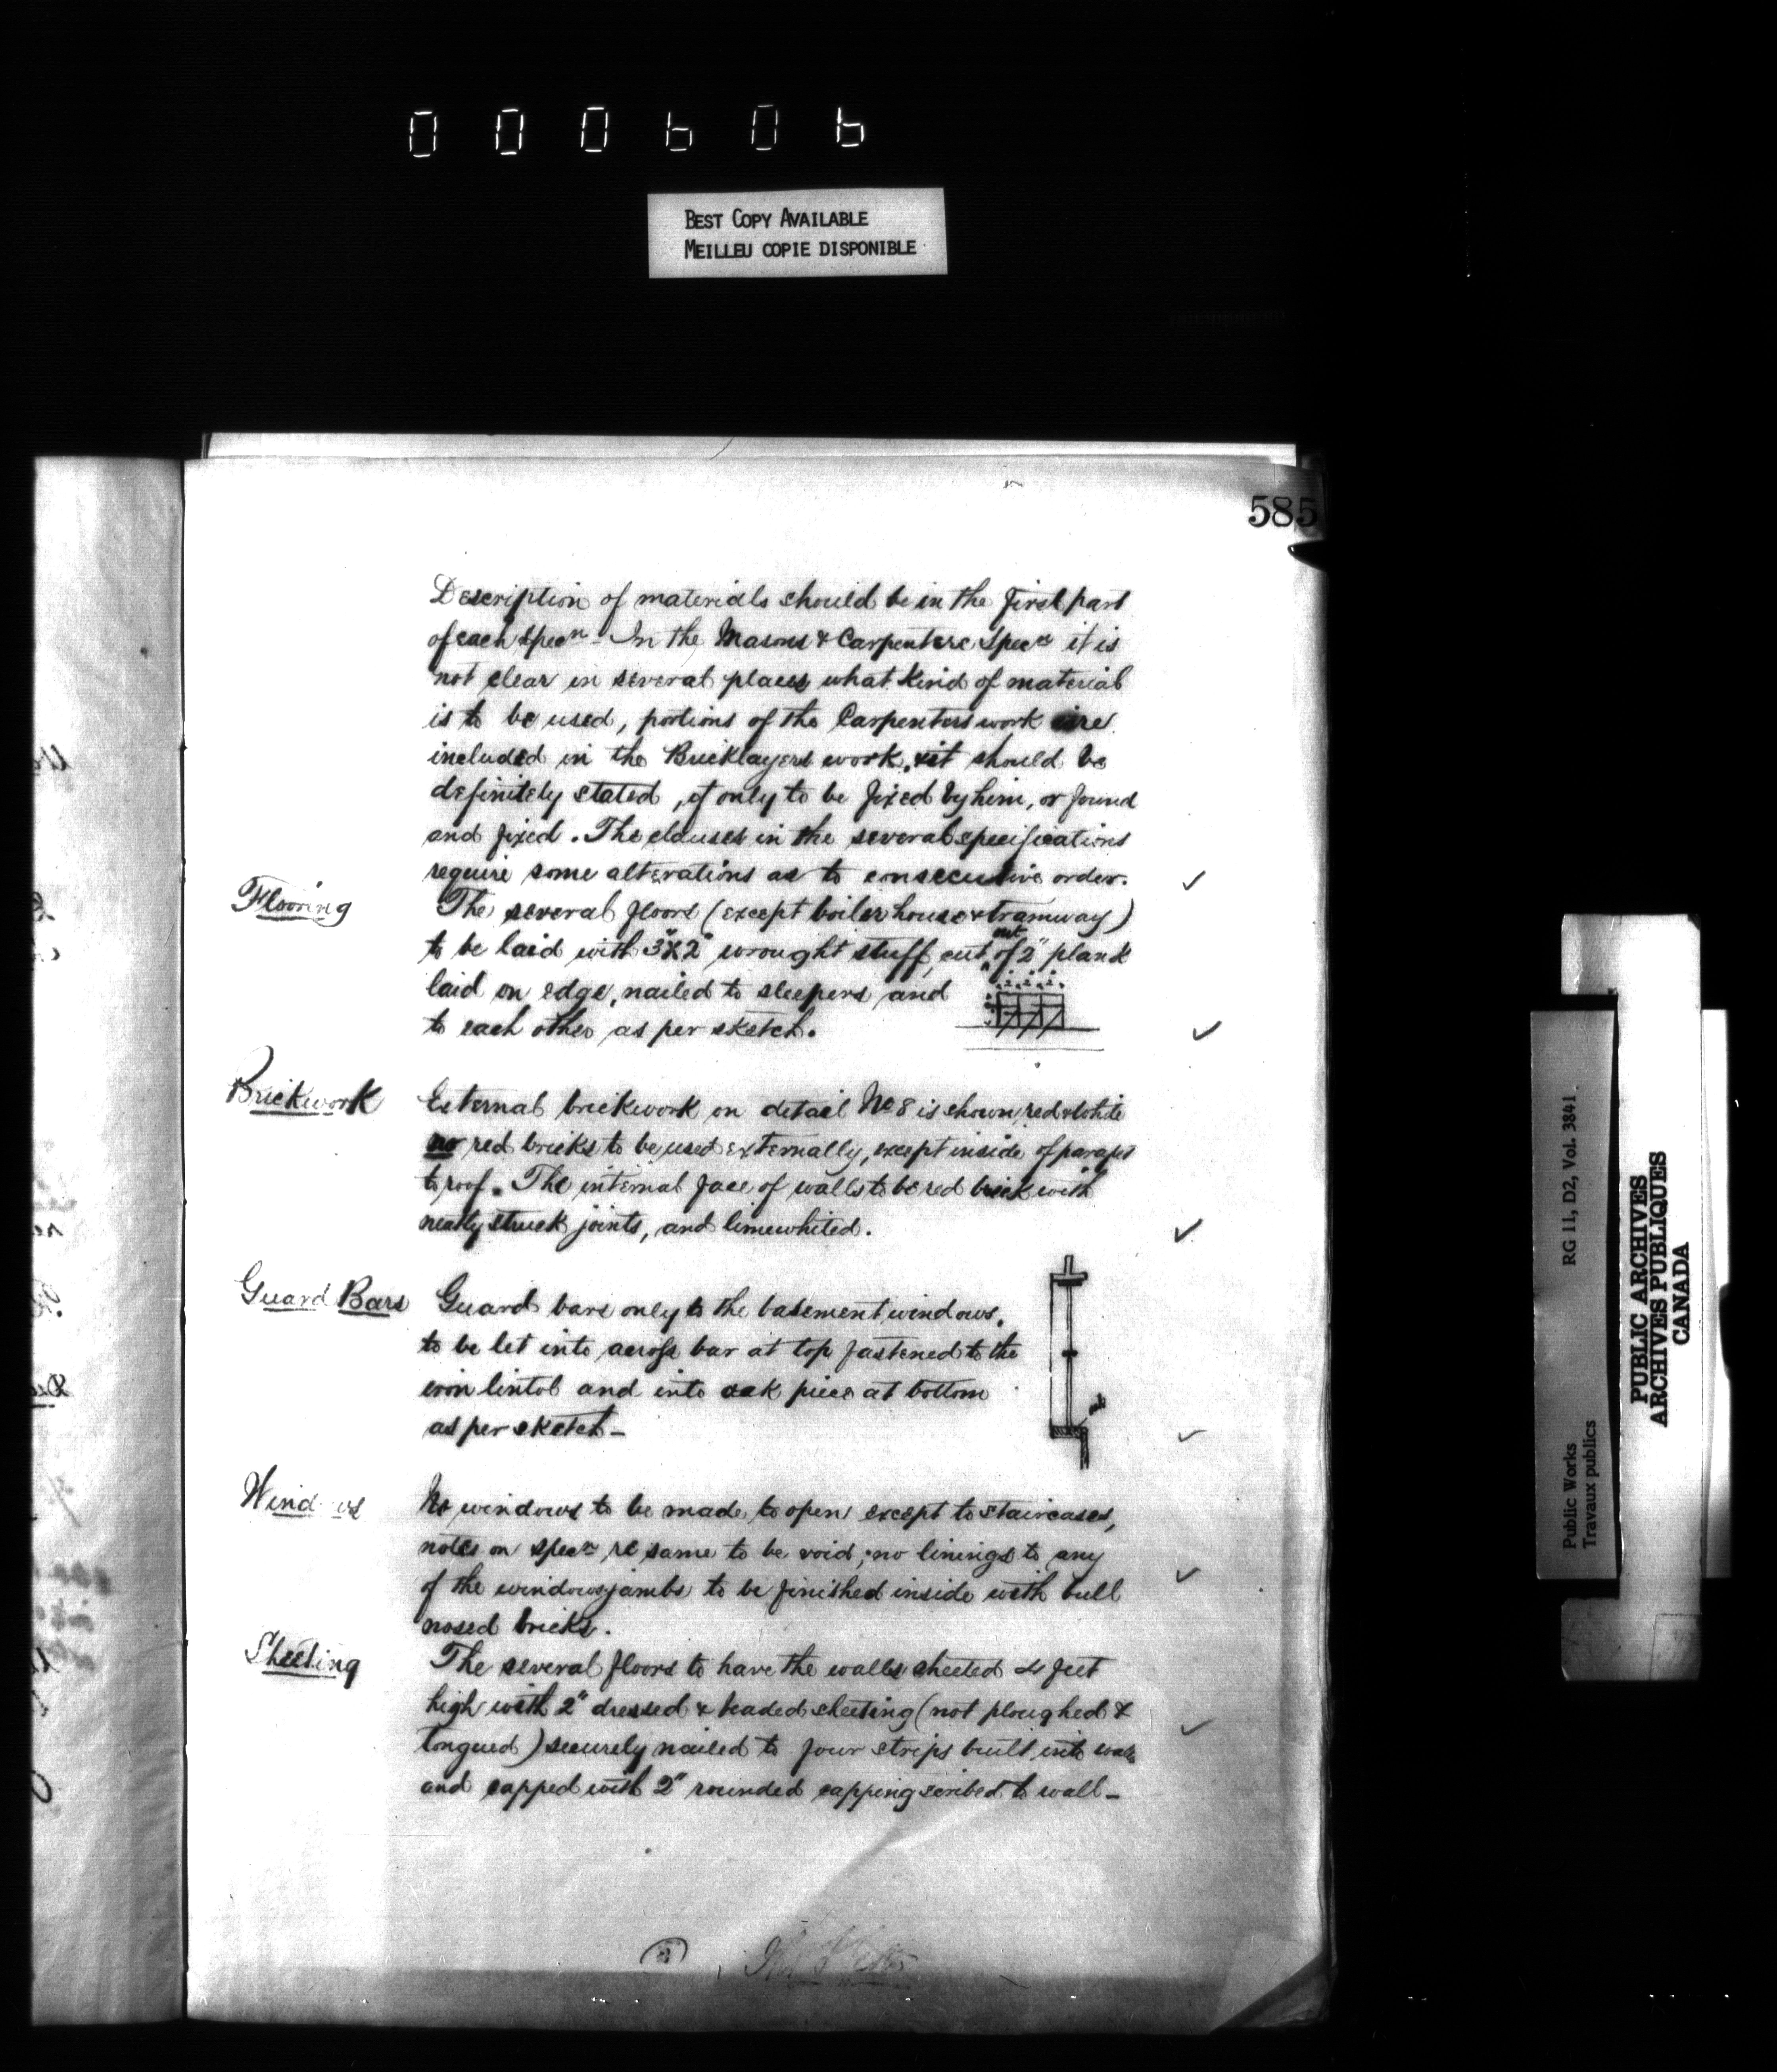 000606
BEST COPY AVAILABLE
MEILLEU COPIE DISPONIBLE
585
Description of materials should be in the first part
of each Specn - In the Masons & Carpenters Specn it is
not clear in several places what kind of material
is to be used, portions of the Carpenters work are
included in the Bricklayers work, & it should be
definitely stated, if only to be fixed by him, or found
and fixed. The clauses in the several specifications
require some alterations as to consecutive order.
Flooring
The several floors (except boiler house & tramway)
to be laid with 3"x2" wrought stuff, cut out of 2" plank
laid on edge, nailed to sleepers and
to each other as per sketch.
Brickwork
External brickwork on detail No 8 is shown red & white
no red bricks to be used externally, except inside of parapet
to roof. The internal face of walls to be red brick with
neatly struck joints, and limewhited.
Guard Bars
Guard bars only to the basement windows,
to be let into across bar at top fastened to the
iron lintol and into oak piece at bottom
as per sketch -
Windows
No windows to be made to open except to staircases,
notes on specn re same to be void, no linings to any
of the windows, jambs to be finished inside with bull
nosed bricks.
Sheeting
The several floors to have the walls sheeted 4 feet
high with 2" dressed & beaded sheeting (not ploughed &
tongued) securely nailed to four strips built into walls
and capped with 2" rounded capping scribed to wall -
Public Works
Travaux publics
RG 11, D2, Vol. 3841.
PUBLIC ARCHIVES
ARCHIVES PUBLIQUES
CANADA